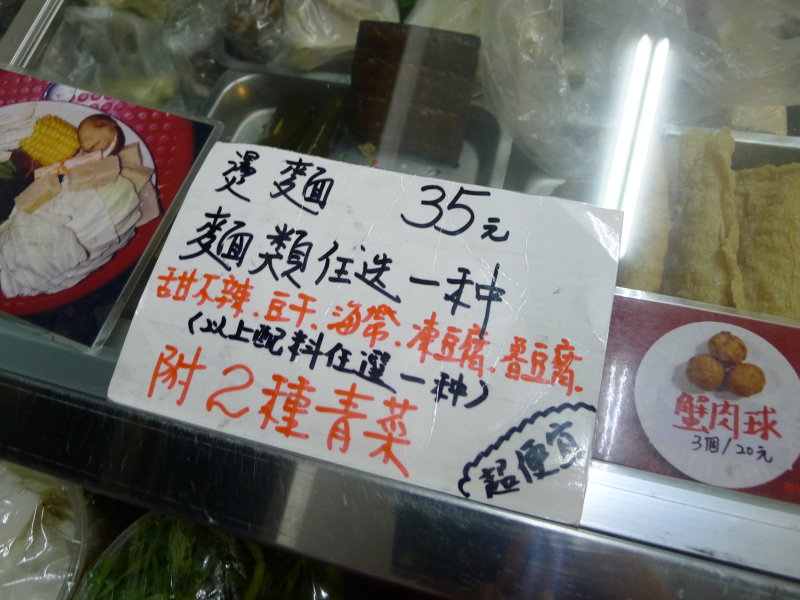 燙麵 35元
麵類任选一种
甜不辣.豆干.海帶.凍豆腐.魯豆腐.
(以上配料任選一种)
附2種青菜
超便宜
蟹肉球
3個/20元